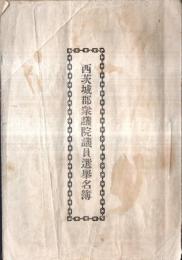 西茨城郡衆議院議員選挙名簿